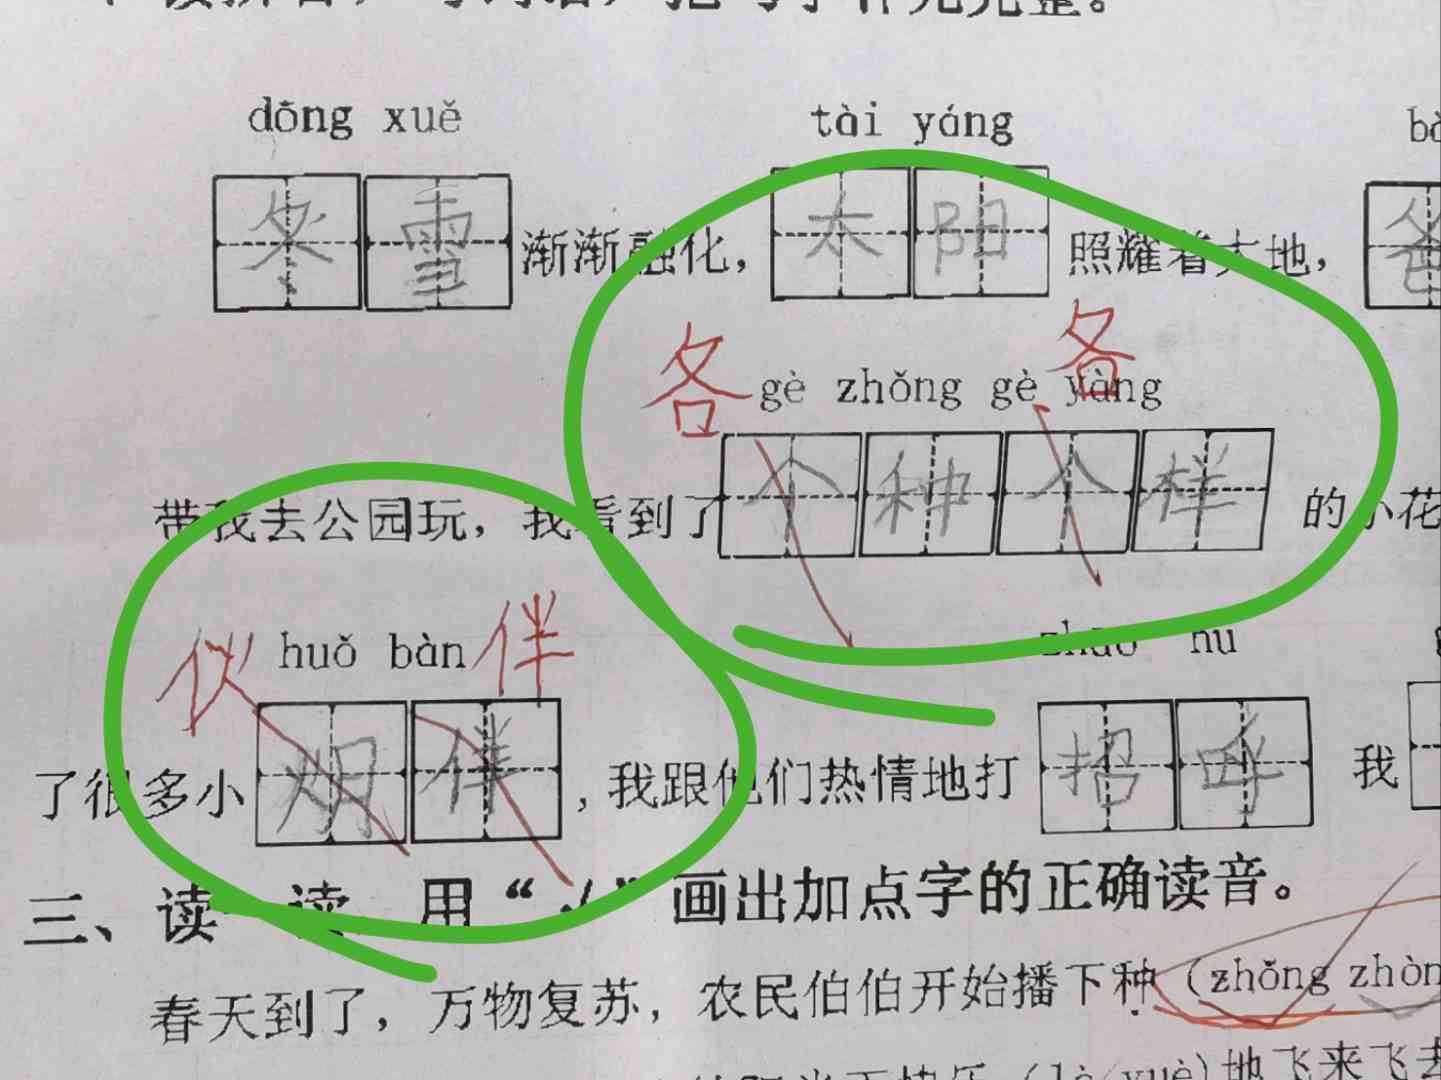 完整。
dōng xuě
tài yáng
冬雪渐渐融化，太阳照耀着大地，爸
各 gè zhǒng gè yàng 各
带我去公园玩，我看到了个种个样的小花
伙 huǒ bàn 伴 zhāo hu
了很多小伴，我跟他们热情地打招呼我
三、读一读，用“√”画出加点字的正确读音。
春天到了，万物复苏，农民伯伯开始播下种（zhǒng zhòn
快乐（lè yuè)地飞来飞去